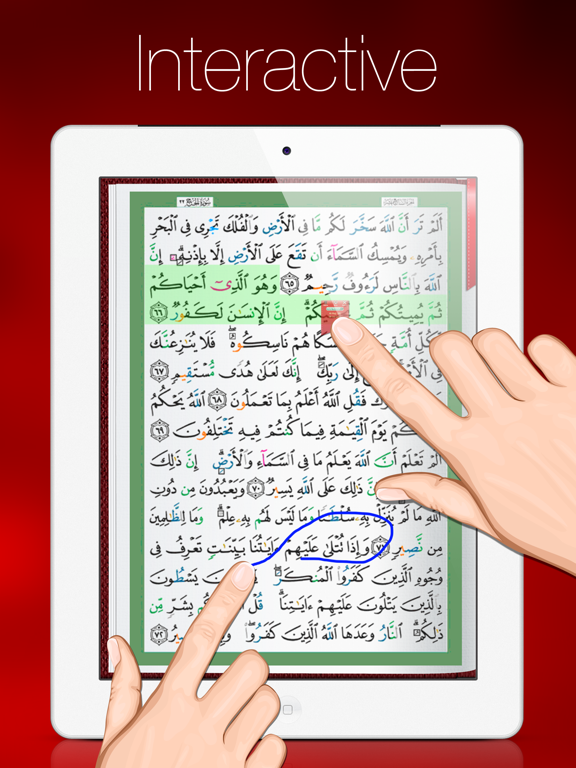 سُورَةُ الحَجِّ ٢٢
Interactive
أَلَمْ تَرَ أَنَّ ٱللَّهَ سَخَّرَ لَكُم مَّا فِى ٱلْأَرْضِ وَٱلْفُلْكَ تَجْرِى فِى ٱلْبَحْرِ
بِأَمْرِهِۦ وَيُمْسِكُ ٱلسَّمَآءَ أَن تَقَعَ عَلَى ٱلْأَرْضِ إِلَّا بِإِذْنِهِۦٓ ۗ إِنَّ
ٱللَّهَ بِٱلنَّاسِ لَرَءُوفٌ رَّحِيمٌ ٦٥ وَهُوَ ٱلَّذِىٓ أَحْيَاكُمْ
ثُمَّ يُمِيتُكُمْ ثُمَّ ۗ إِنَّ ٱلْإِنسَٰنَ لَكَفُورٌ ٦٦
أُمَّةٍ هُمْ نَاسِكُوهُ ۖ فَلَا يُنَٰزِعُنَّكَ
فِى إِلَىٰ رَبِّكَ ۖ إِنَّكَ لَعَلَىٰ هُدًى مُّسْتَقِيمٍ ٦٧
فَقُلِ ٱللَّهُ أَعْلَمُ بِمَا تَعْمَلُونَ ٦٨ ٱللَّهُ يَحْكُمُ
يَوْمَ ٱلْقِيَٰمَةِ فِيمَا كُنتُمْ فِيهِ تَخْتَلِفُونَ ٦٩
أَلَمْ تَعْلَمْ أَنَّ ٱللَّهَ يَعْلَمُ مَا فِى ٱلسَّمَآءِ وَٱلْأَرْضِ ۗ إِنَّ ذَٰلِكَ
إِنَّ ذَٰلِكَ عَلَى ٱللَّهِ يَسِيرٌ ٧٠ وَيَعْبُدُونَ مِن دُونِ
ٱللَّهِ مَا لَمْ يُنَزِّلْ بِهِۦ سُلْطَٰنًا وَمَا لَيْسَ لَهُم بِهِۦ عِلْمٌ ۗ وَمَا لِلظَّٰلِمِينَ
مِن نَّصِيرٍ ٧١ وَإِذَا تُتْلَىٰ عَلَيْهِمْ ءَايَٰتُنَا بَيِّنَٰتٍ تَعْرِفُ فِى
وُجُوهِ ٱلَّذِينَ كَفَرُوا۟ ٱلْمُنكَرَ ۖ يَسْطُونَ
بِٱلَّذِينَ يَتْلُونَ عَلَيْهِمْ ءَايَٰتِنَا ۗ قُلْ بِشَرٍّ مِّن
ذَٰلِكُمُ ۗ ٱلنَّارُ وَعَدَهَا ٱللَّهُ ٱلَّذِينَ كَفَرُوا۟ ۖ ٧٢